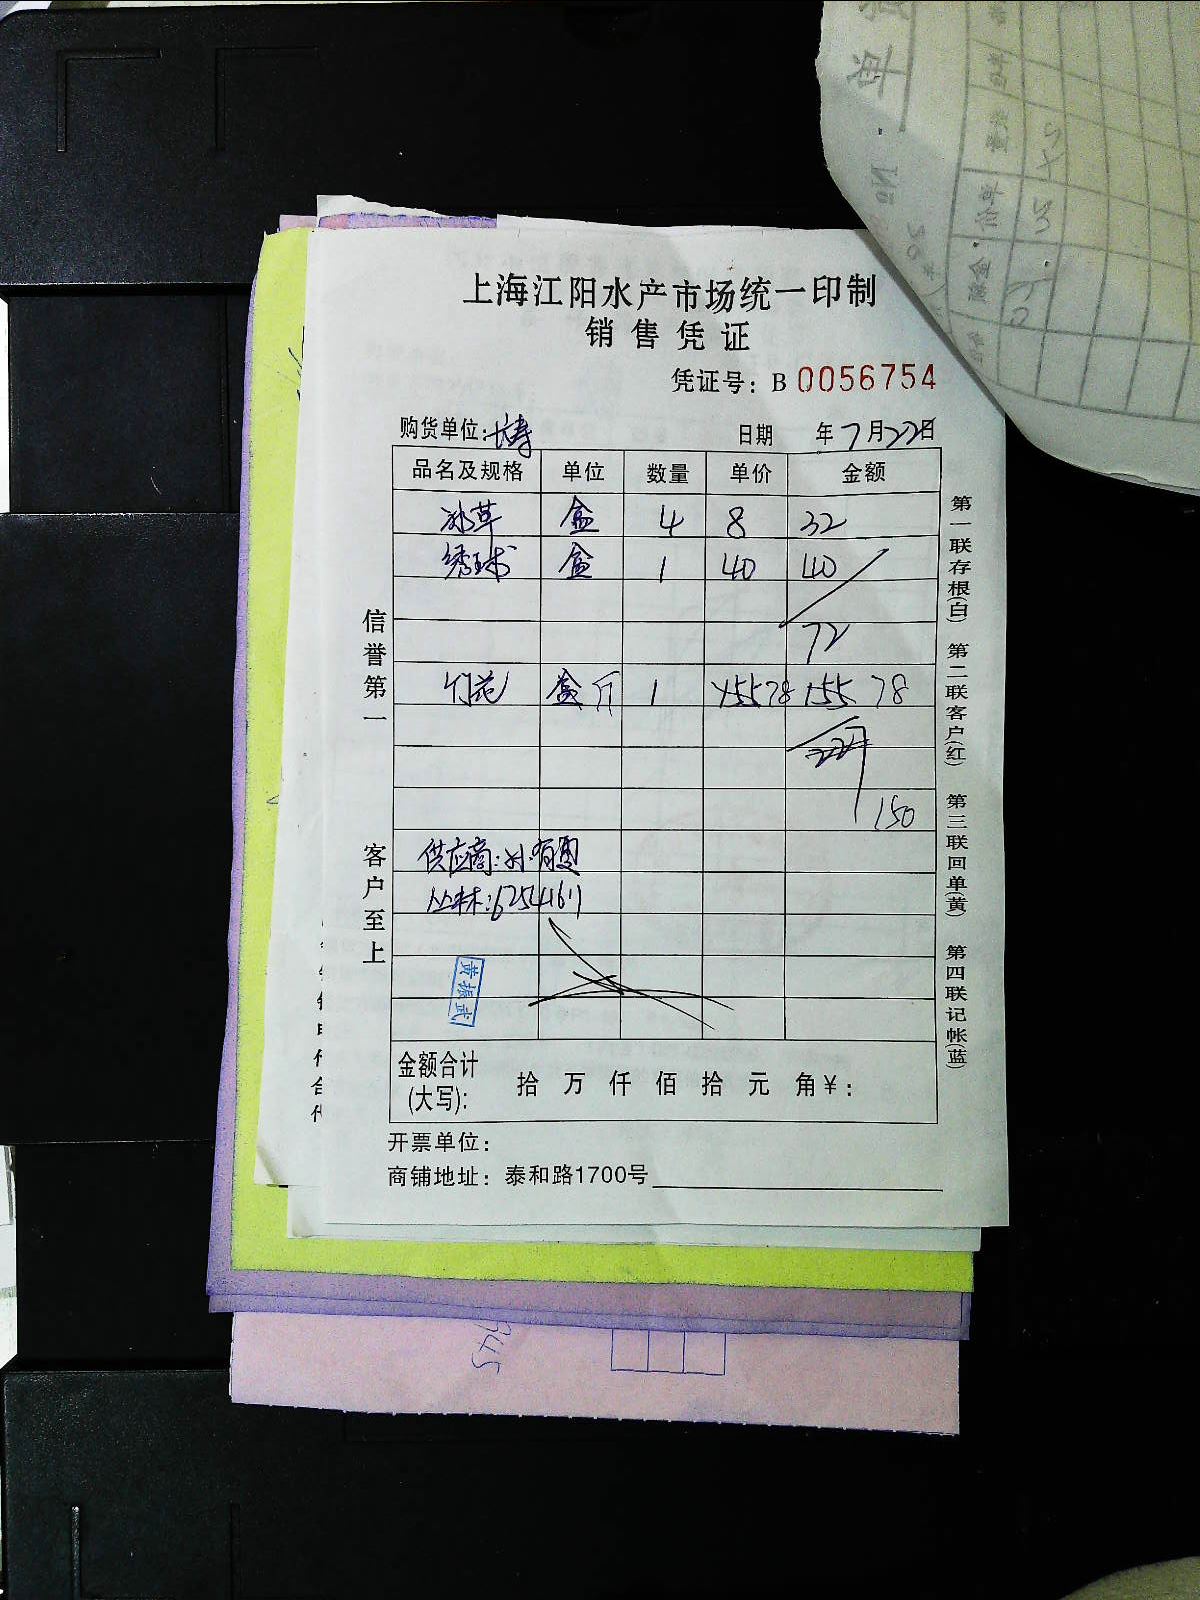 上海江阳水产市场统一印制
销售凭证
凭证号：B 0056754
购货单位：大寿 日期 年7月22日
品名及规格 单位 数量 单价 金额
冰草 盒 4 8 32
绣球 盒 1 40 40
72
竹花 盒 斤 1 155 78 155 78
227
150
供应商：孙有
丛林：62541611
黄振武
金额合计(大写)： 拾 万 仟 佰 拾 元 角 ¥：
开票单位：
商铺地址：泰和路1700号
信誉第一
客户至上
第一联存根(白) 第二联客户(红) 第三联回单(黄) 第四联记帐(蓝)